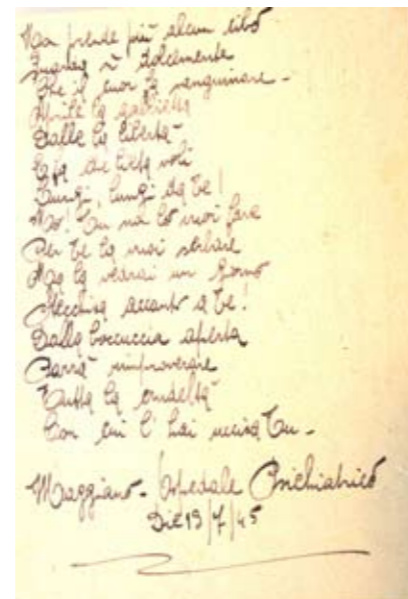 Non prende più alcun cibo
Guarda sì dolcemente
Che il cuor fa sanguinare -
Aprile la gabbietta
Dalle la libertà -
E fa che lieta voli
Lungi, lungi da te!
No! Tu no lo vuoi fare
Per te la vuoi serbare
Ma la vedrai un giorno
Stecchita accanto a te!
Dalla boccuccia aperta
Parrà rimproverare
Tutta la crudeltà
Con cui l'hai uccisa tu -
Maggiano - Ospedale Psichiatrico
19/4/45